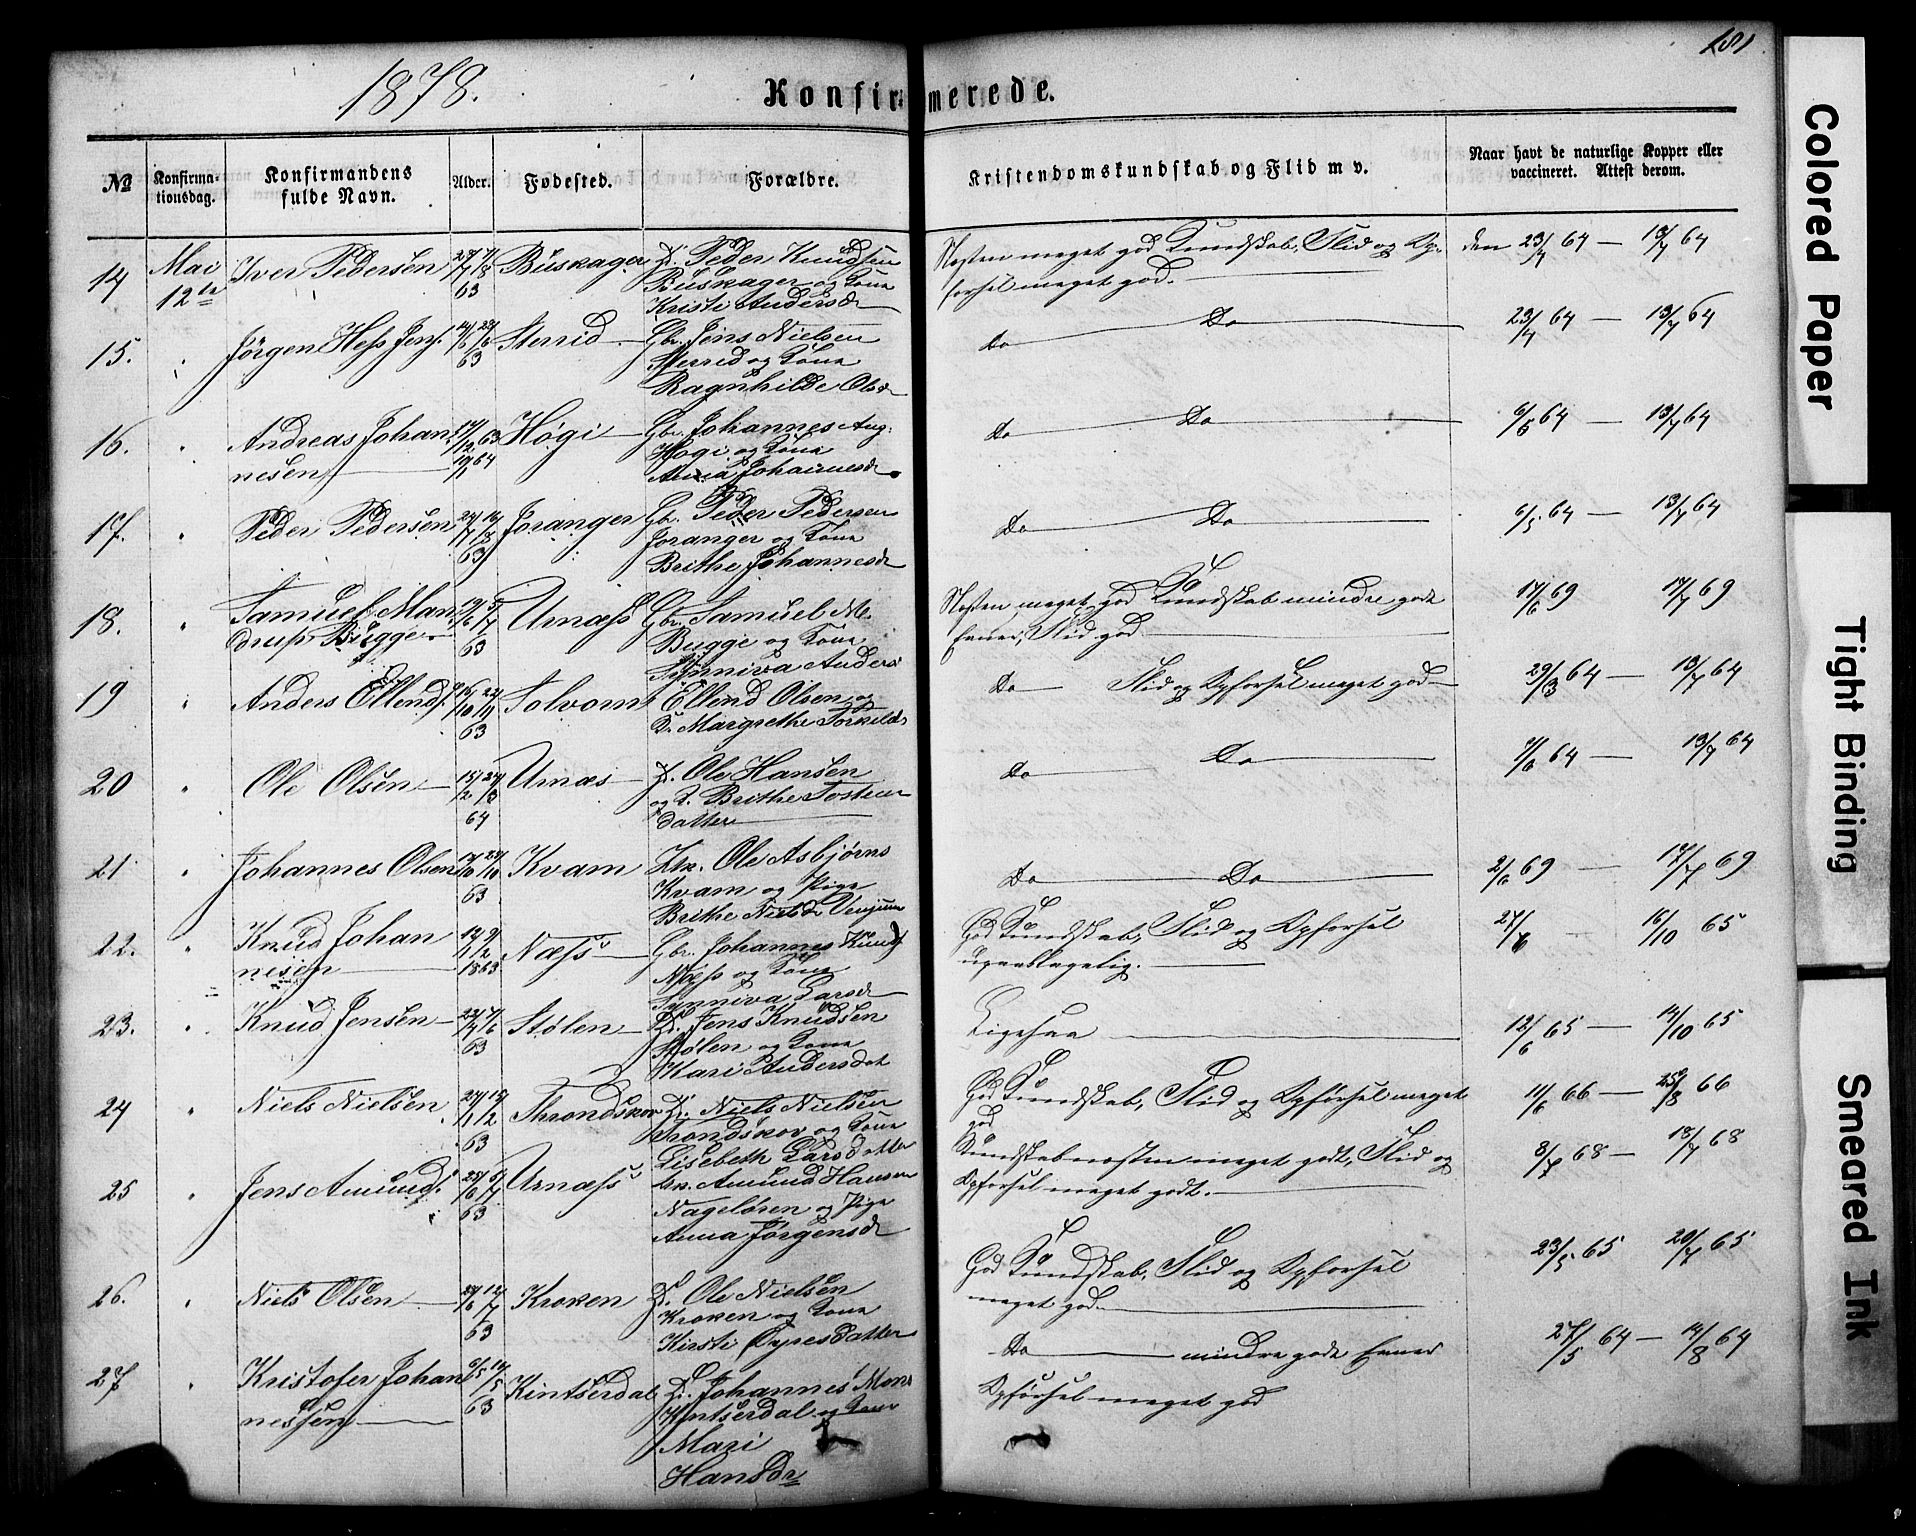 1878.
Konfirmerede.
181
№
Konfirmationsdag.
Konfirmandens fulde Navn.
Alder.
Fødested.
Forældre.
Kristendomskundskab og Flid m v.
Naar havt de naturlige Kopper eller vaccineret. Attest derom.
14 Mai 12te Iver Pedersen 27/7 7/8 63 Buskager Peder Knudsen
Buskager og Kona
Kristi Andersdr
Næsten meget god Kundskab, Flid og Op-
førsel meget god.
den 23/4 64 — 13/7 64
15. " Jørgen Hess Jens. 63 Sterrid Gbr. Jens Nielsen
Sterrid og Kona
Ragnhilde Olsdr
Do Do 23/4 64 — 13/7 64
16. " Andreas Johan 17/12 63 Høgi Gbr. Johannes Aug.
nesen 19/1 64 Høgi og Kona
Anna Johannesdr
Do Do 6/5 64 — 13/7 64
17. " Peder Pedersen 24/7 16/8 63 Joranger Gbr. Peder Pedersen
Joranger og Kona
Brithe Johannesdr
Do Do 6/5 64 — 13/7 64
18. " Samuel Man 19/6 5/7 63 Urnæss Gbr. Samuel M.
drup Bugge Bugge og Kona
Synniva Anders
Næsten meget god Kundskab mindre gode
Evner, Flid god
17/6 69 17/7 69
19 " Anders Ellends. 16/10 22/11 63 Solvorn Ellend Olsen og
K. Margrethe Torkilds
Do Flid og Opførsel meget god 29/3 64 — 13/7 64
20 " Ole Olsen 15/2 27/3 64 Urnæs Ole Hansen
og K. Brithe Tosten
datter
Do Do 7/6 64 — 13/7 64
21 " Johannes Olsen 63 Kvam Ole Asbjørns
Kvam og Pige
Brithe Nielsdr Venjum
Do Do 2/6 69 — 17/7 69
22. " Knud Johan 14/1 9/2 1863 Næss Gbr. Johannes Knuds
nesen Næss og Kona
Synniva Larsdr
God Kundskab, Flid og Opførsel
upaaklagelig.
27/6 — 16/10 65
23. " Knud Jensen 63 Stølen Jens Knudsen
Stølen og Kona
Kari Andersdat
Ligesaa 12/6 65 — 14/10 65
24 " Niels Nielsen 63 Throndskov Niels Nielsen
Trondskov og Kona
Lisebeth Larsdatter
God Kundskab, Flid og Opførsel meget
god
11/6 66 — 25/8 66
25 " Jens Amunds. 63 Urnæss Amund Hansen
Nageløren og Pige
Anna Jørgensdr
Kundskab næsten meget godt, Flid og
Opførsel meget godt.
8/7 68 — 18/7 68
26. " Niels Olsen 63 Kroken Ole Nielsen
Kroken og Kona
Kirsti Eyresdatter
God Kundskab, Flid og Opførsel
meget god.
23/5 65 20/7 65
27 " Kristofer Johan 63 Kintserdal Johannes Mons
nessen Kintserdal og Kona
Mari
Hansdr
Do mindre gode Evner
Opførsel meget god
27/5 64 — 14/8 64
Colored Paper
Tight Binding
Smeared Ink